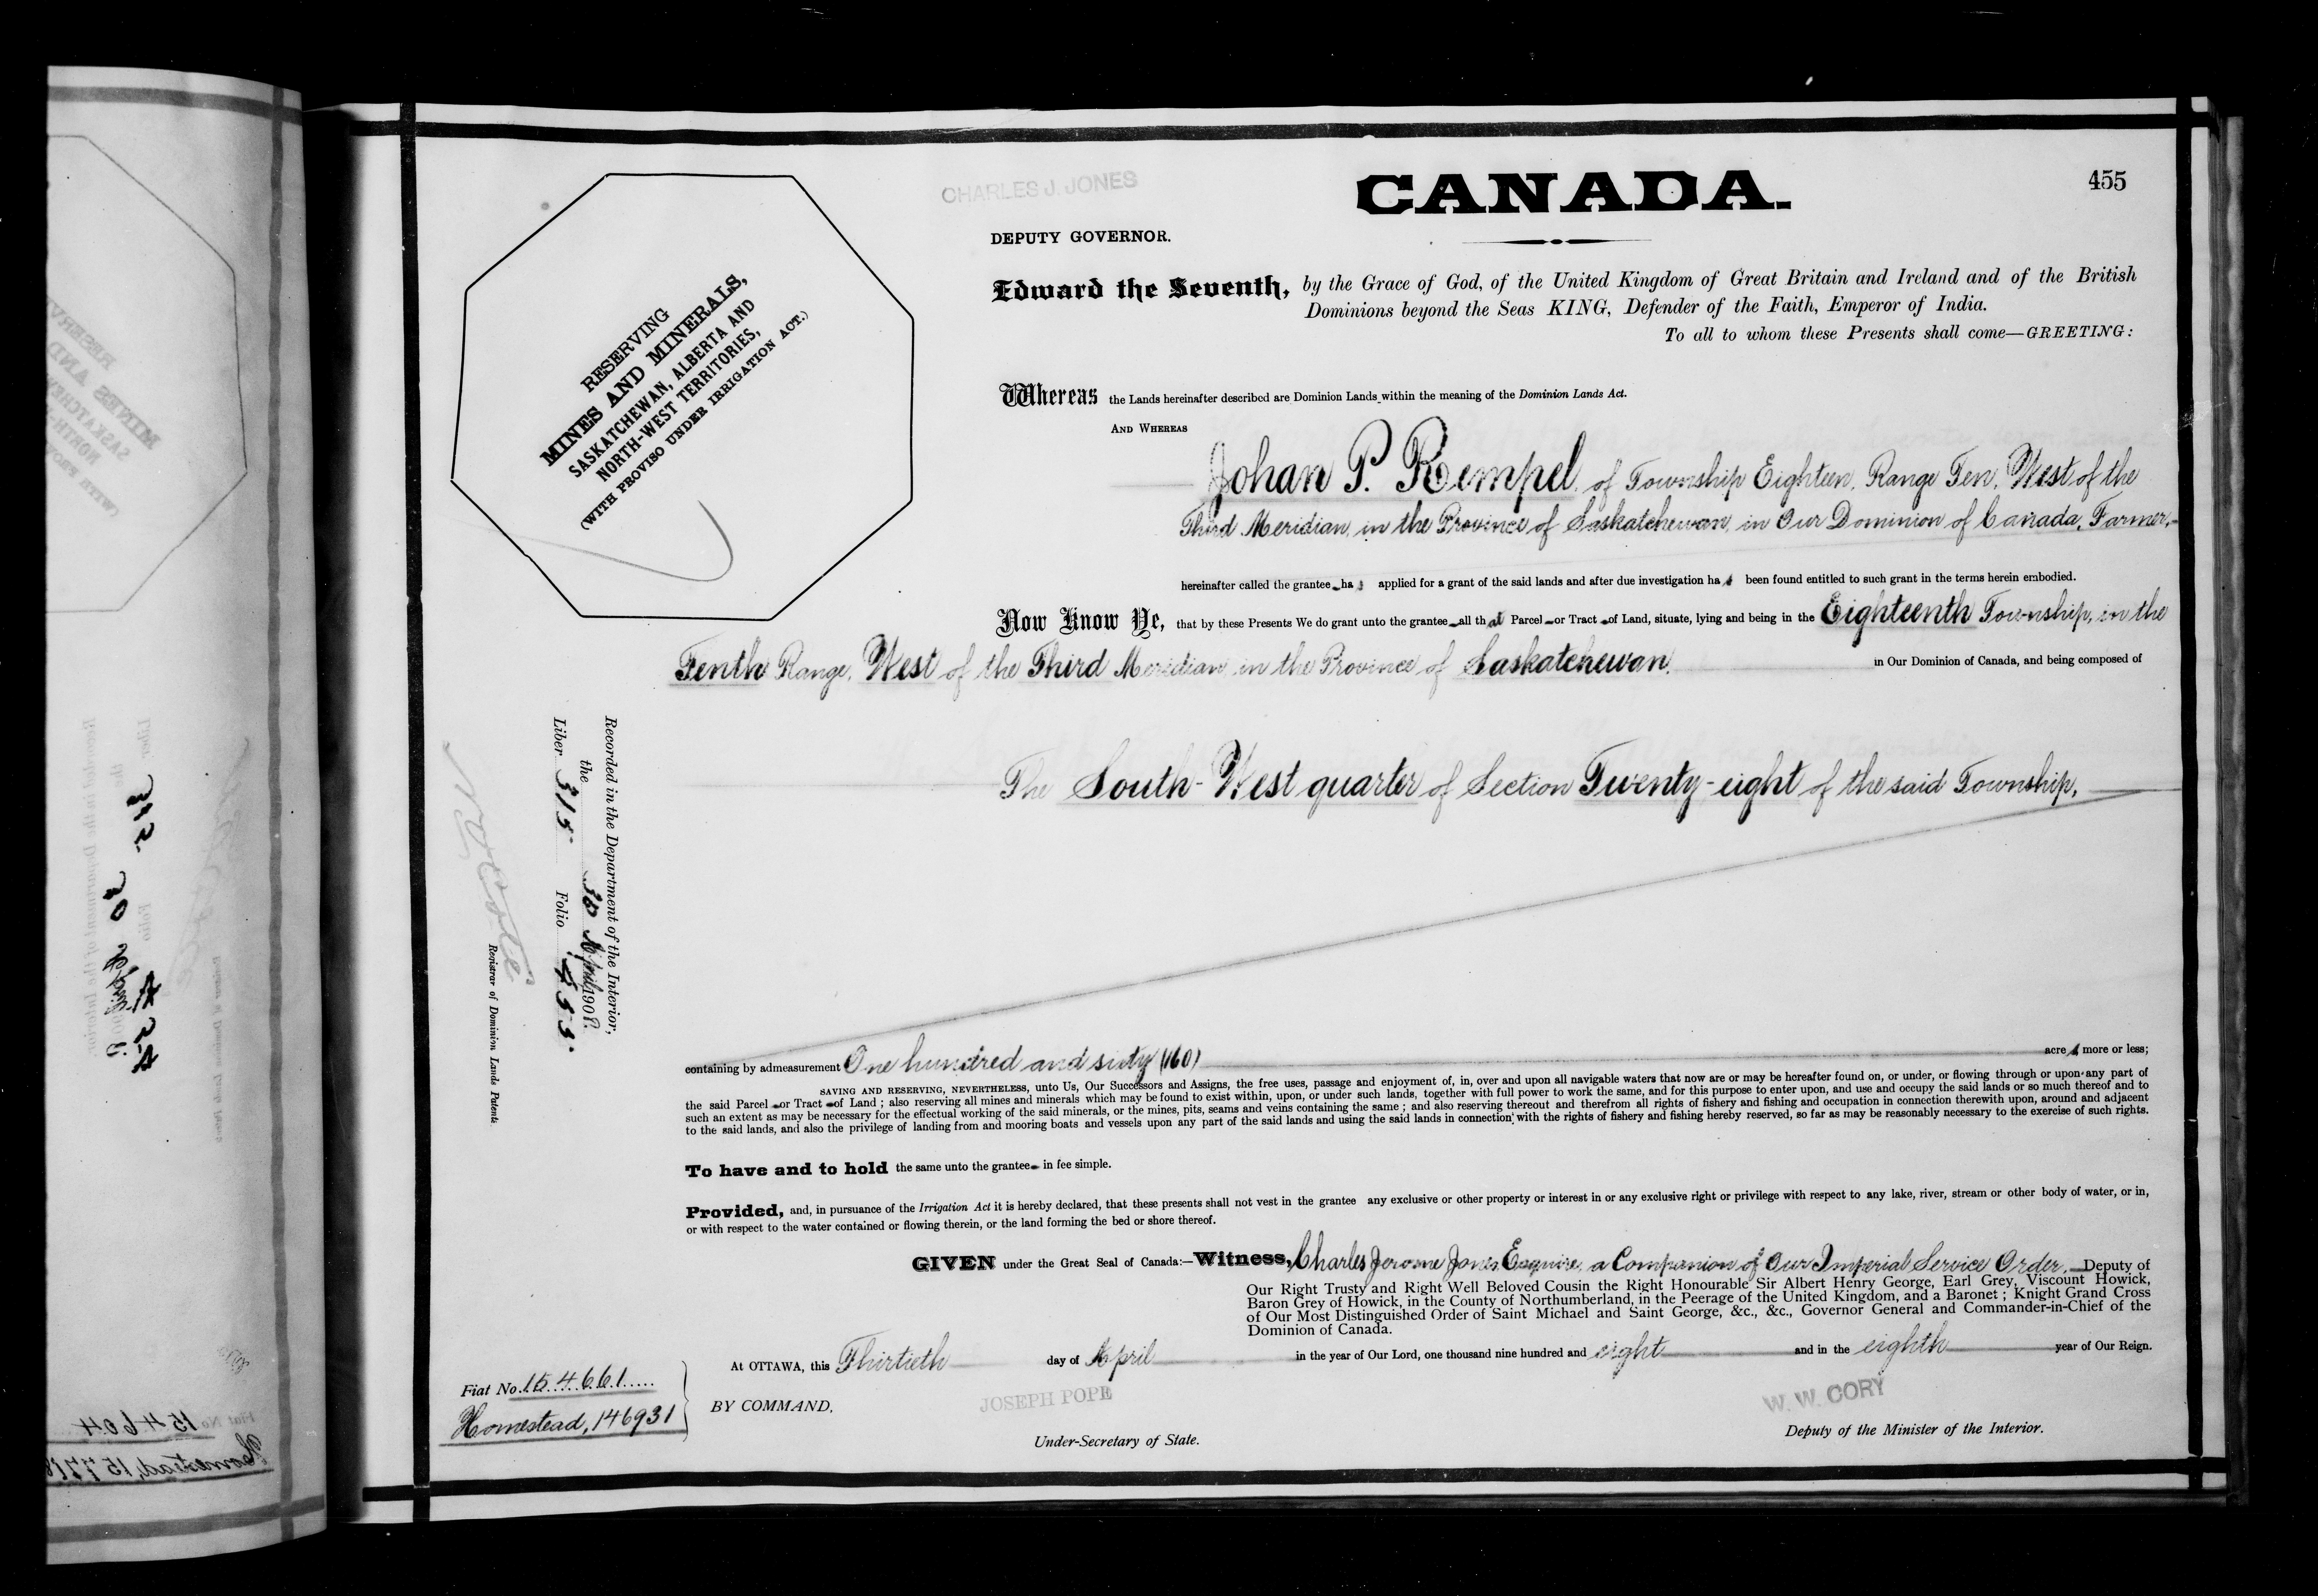 455
CHARLES J. JONES
CANADA.
DEPUTY GOVERNOR.
RESERVING
MINES AND MINERALS,
SASKATCHEWAN, ALBERTA AND
NORTH-WEST TERRITORIES,
(WITH PROVISO UNDER IRRIGATION ACT.)
Edward the Seventh, by the Grace of God, of the United Kingdom of Great Britain and Ireland and of the British
Dominions beyond the Seas KING, Defender of the Faith, Emperor of India.
To all to whom these Presents shall come—GREETING:
Whereas the Lands hereinafter described are Dominion Lands within the meaning of the Dominion Lands Act.
AND WHEREAS
Johan P. Rempel, of Township Eighteen, Range Ten, West of the
Third Meridian, in the Province of Saskatchewan, in Our Dominion of Canada, Farmer,—
hereinafter called the grantee has applied for a grant of the said lands and after due investigation has been found entitled to such grant in the terms herein embodied.
Now Know Ye, that by these Presents We do grant unto the grantee all that Parcel or Tract of Land, situate, lying and being in the Eighteenth Township, in the
Tenth Range, West of the Third Meridian, in the Province of Saskatchewan, in Our Dominion of Canada, and being composed of
The South-West quarter of Section Twenty-eight of the said Township,
Recorded in the Department of the Interior,
the 30 April 1908.
Liber 315 Folio 455.
Registrar of Dominion Lands Patents.
containing by admeasurement One hundred and sixty (160) acres more or less;
SAVING AND RESERVING, NEVERTHELESS, unto Us, Our Successors and Assigns, the free uses, passage and enjoyment of, in, over and upon all navigable waters that now are or may be hereafter found on, or under, or flowing through or upon any part of
the said Parcel or Tract of Land; also reserving all mines and minerals which may be found to exist within, upon, or under such lands, together with full power to work the same, and for this purpose to enter upon, and use and occupy the said lands or so much thereof and to
such an extent as may be necessary for the effectual working of the said minerals, or the mines, pits, seams and veins containing the same; and also reserving thereout and therefrom all rights of fishery and fishing and occupation in connection therewith upon, around and adjacent
to the said lands, and also the privilege of landing from and mooring boats and vessels upon any part of the said lands and using the said lands in connection with the rights of fishery and fishing hereby reserved, so far as may be reasonably necessary to the exercise of such rights.
To have and to hold the same unto the grantee in fee simple.
Provided, and, in pursuance of the Irrigation Act it is hereby declared, that these presents shall not vest in the grantee any exclusive or other property or interest in or any exclusive right or privilege with respect to any lake, river, stream or other body of water, or in,
or with respect to the water contained or flowing therein, or the land forming the bed or shore thereof.
GIVEN under the Great Seal of Canada:—Witness, Charles Jerome Jones Esquire, a Companion of Our Imperial Service Order,—Deputy of
Our Right Trusty and Right Well Beloved Cousin the Right Honourable Sir Albert Henry George, Earl Grey, Viscount Howick,
Baron Grey of Howick, in the County of Northumberland, in the Peerage of the United Kingdom, and a Baronet; Knight Grand Cross
of Our Most Distinguished Order of Saint Michael and Saint George, &c., &c., Governor General and Commander-in-Chief of the
Dominion of Canada.
At OTTAWA, this Thirtieth day of April in the year of Our Lord, one thousand nine hundred and eight and in the eighth year of Our Reign.
Fiat No. 154661
Homestead, 146931
BY COMMAND,
JOSEPH POPE
Under-Secretary of State.
W. W. CORY
Deputy of the Minister of the Interior.